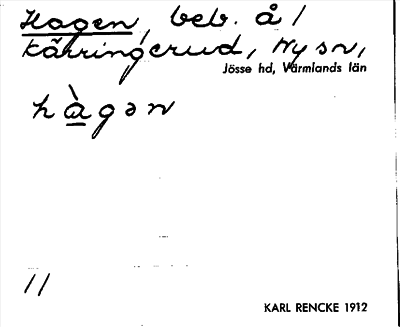 Hagen, beb. å /
Kärringerud, Ny sn,
Jösse hd, Värmlands län
hàgən
//
KARL RENCKE 1912